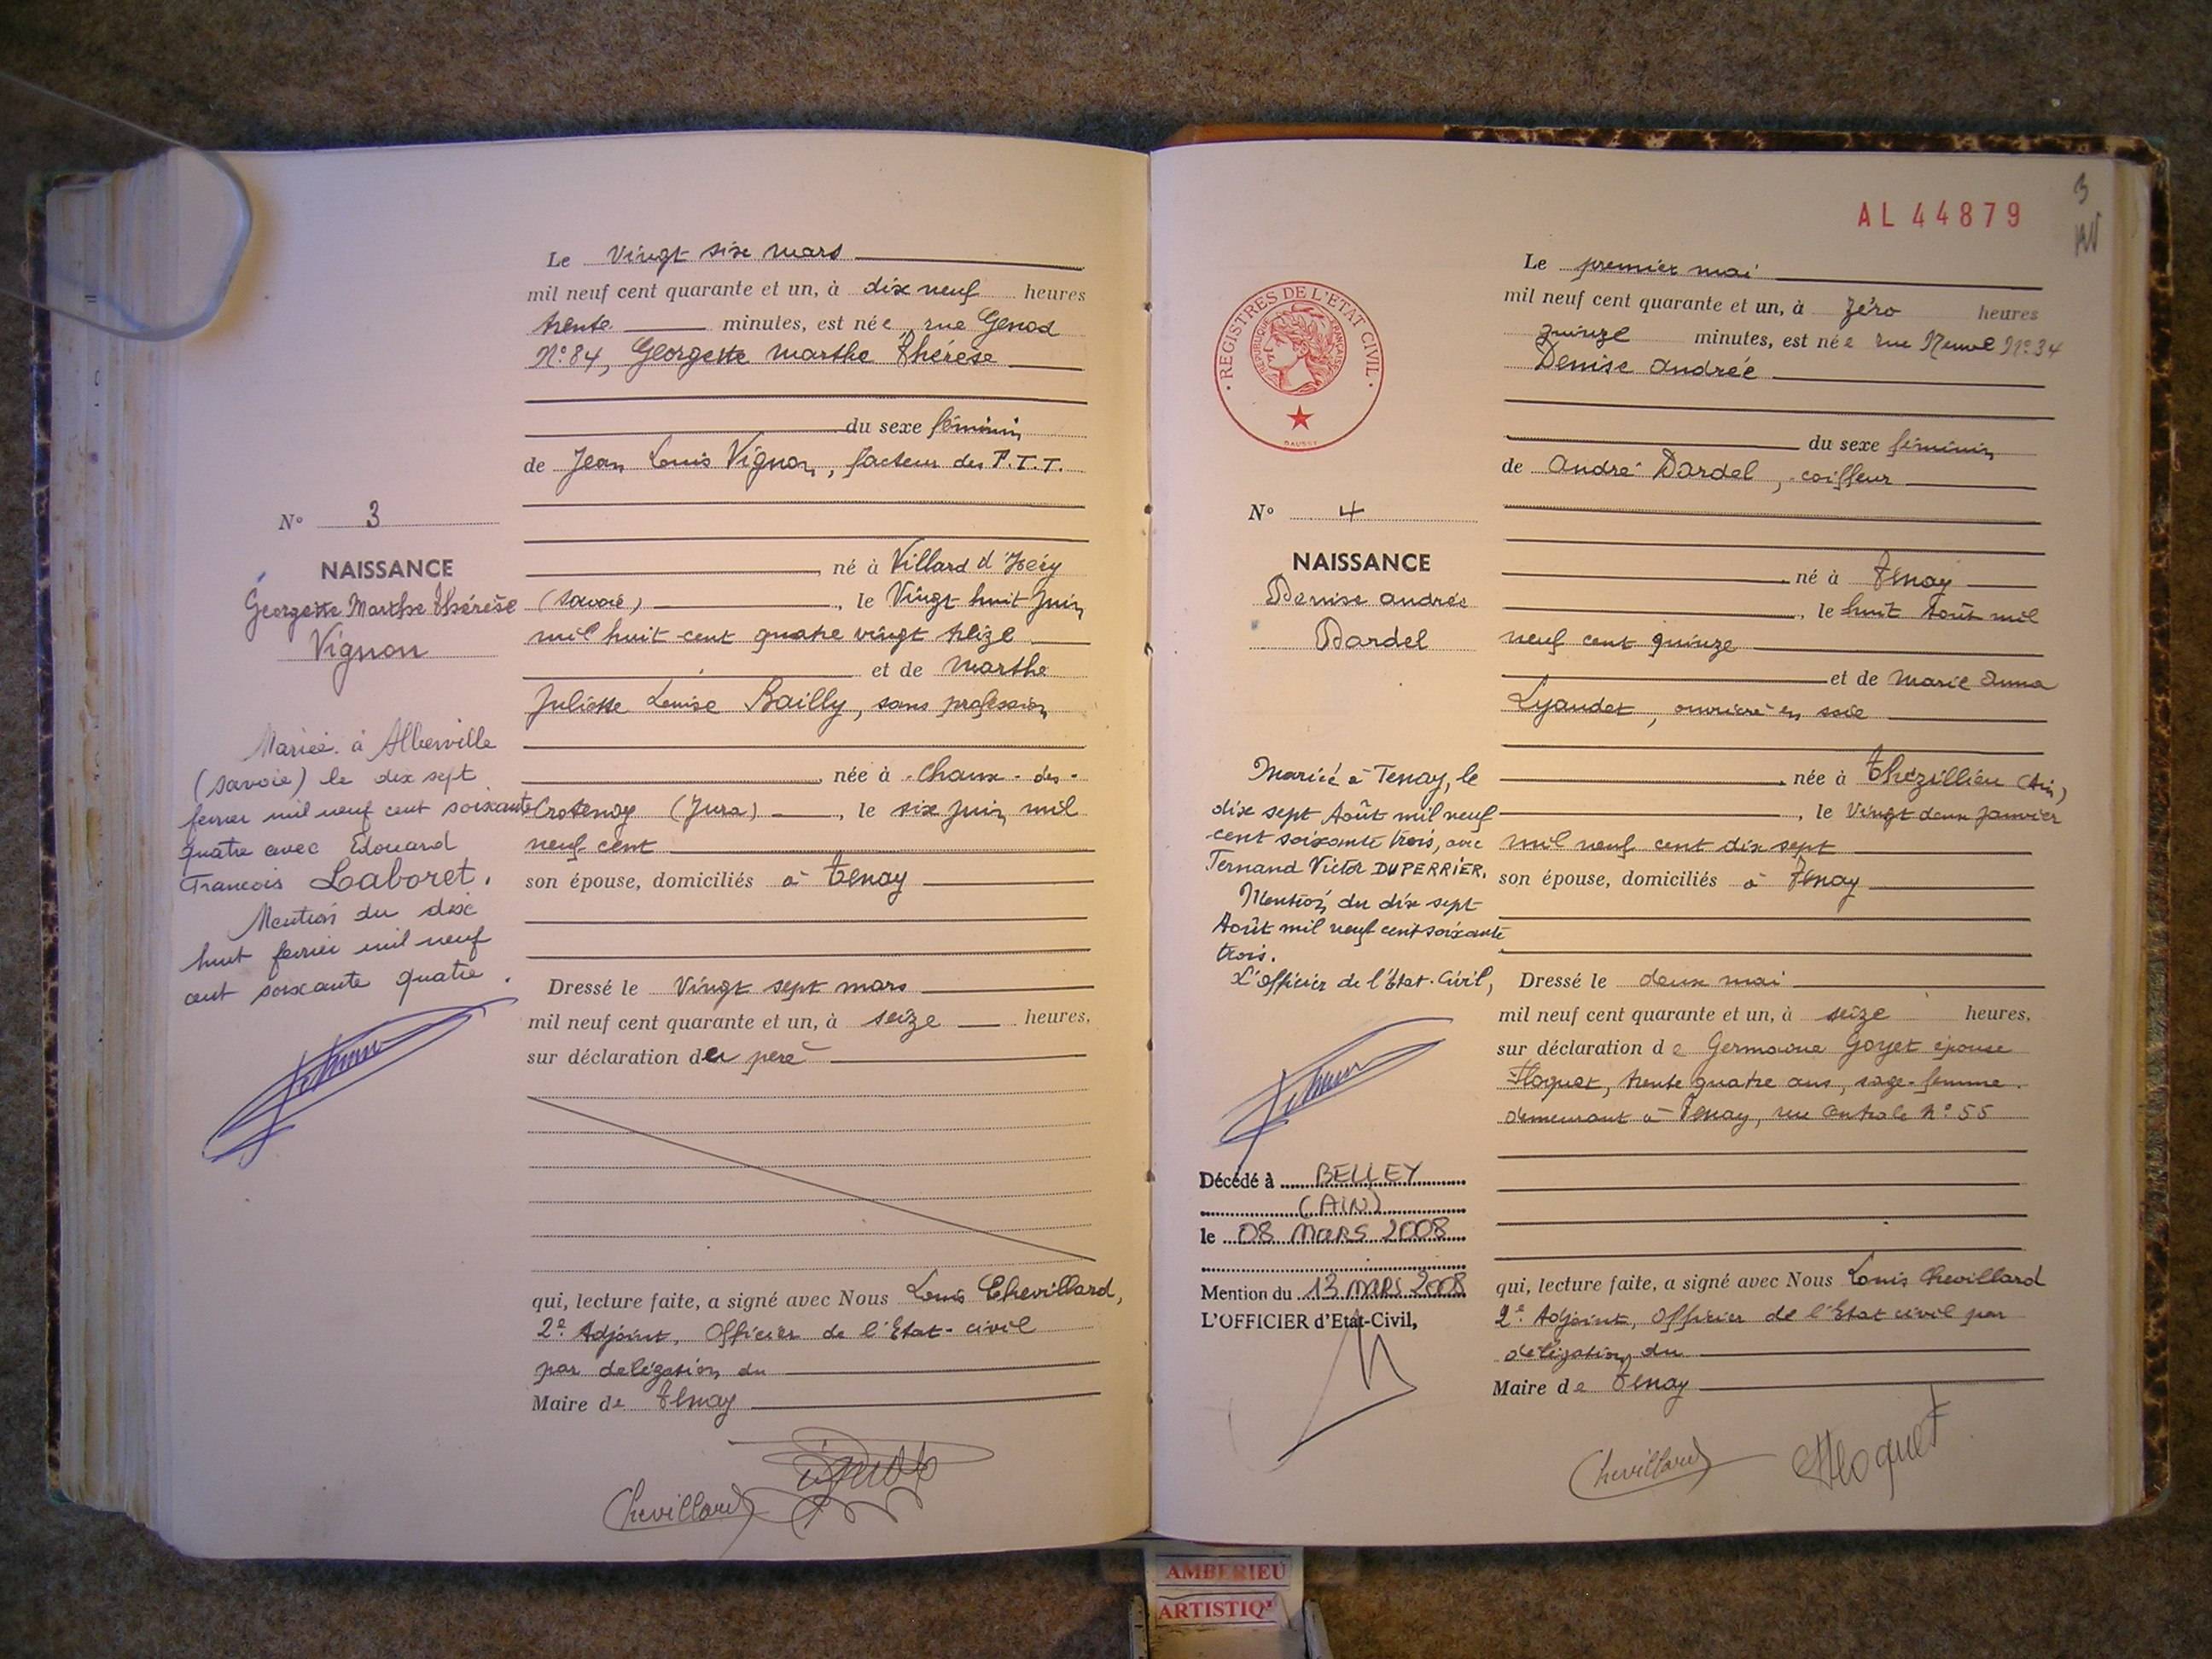 Le vingt six mars
mil neuf cent quarante et un, à dix neuf heures
trente minutes, est née, rue Genod
N° 84, Georgette Marthe Thérèse
du sexe féminin
de Jean Louis Vignon, facteur des P.T.T.
N° 3
NAISSANCE
Georgette Marthe Thérèse
Vignon
né à Villard d'Héry
(Savoie), le vingt huit juin
mil huit cent quatre vingt treize
et de Marthe
Juliette Louise Bailly, sans profession
née à Chaux-des-
Crotenay (Jura), le six juin mil
neuf cent
son épouse, domiciliés à Tenay
Mariée à Albertville
(Savoie) le dix sept
fevrier mil neuf cent soixante
quatre avec Edouard
Francois Laboret.
Mention du dix
huit fevrier mil neuf
cent soixante quatre.
Dressé le vingt sept mars
mil neuf cent quarante et un, à seize heures,
sur déclaration du père
qui, lecture faite, a signé avec Nous Louis Chevillard,
2e Adjoint, Officier de l'Etat-civil
par délégation du
Maire de Tenay
Chevillard
3
AL 44879
REGISTRES DE L'ETAT CIVIL
REPUBLIQUE FRANCAISE
DAUSSY
Le premier mai
mil neuf cent quarante et un, à zéro heures
quinze minutes, est née rue Neuve N° 34
Denise Andrée
du sexe féminin
de André Dardel, coiffeur
N° 4
NAISSANCE
Denise Andrée
Dardel
né à Tenay
, le huit Août mil
neuf cent quinze
et de Marie Anna
Lyaudet, ouvrière en soie
née à Thézillieu (Ain)
, le vingt deux janvier
mil neuf cent dix sept
son épouse, domiciliés à Tenay
Mariée à Tenay, le
dix sept Août mil neuf
cent soixante trois, avec
Fernand Victor DUPERRIER.
Mention du dix sept
Août mil neuf cent soixante
trois.
L'Officier de l'Etat-Civil,
Dressé le deux mai
mil neuf cent quarante et un, à seize heures,
sur déclaration de Germaine Goyet épouse
Hoquet, trente quatre ans, sage-femme.
demeurant à Tenay, rue Centrale N° 55
Décédé à BELLEY
(AIN)
le 08 MARS 2008
Mention du 13 MARS 2008
L'OFFICIER d'Etat-Civil,
qui, lecture faite, a signé avec Nous Louis Chevillard
2e Adjoint, Officier de l'Etat civil par
délégation du
Maire de Tenay
Chevillard Hoquet
AMBERIEU
ARTISTIQ